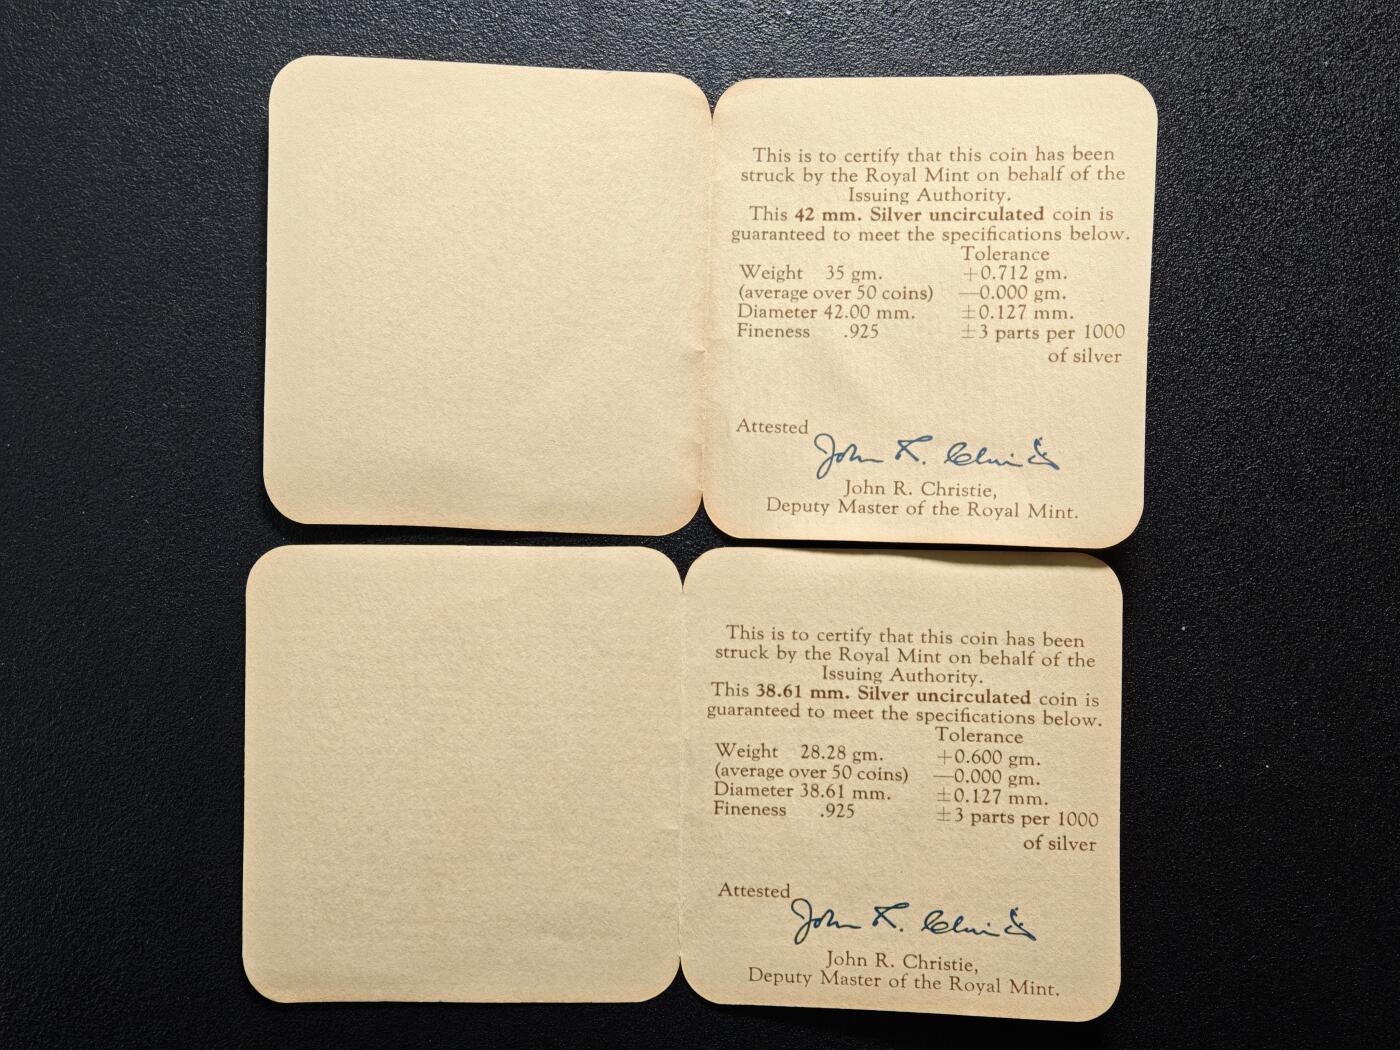 This is to certify that this coin has been
struck by the Royal Mint on behalf of the
Issuing Authority.
This 42 mm. Silver uncirculated coin is
guaranteed to meet the specifications below.
Tolerance
Weight 35 gm. +0.712 gm.
(average over 50 coins) —0.000 gm.
Diameter 42.00 mm. ±0.127 mm.
Fineness .925 ±3 parts per 1000
of silver
Attested
John R. Christie
John R. Christie,
Deputy Master of the Royal Mint.
This is to certify that this coin has been
struck by the Royal Mint on behalf of the
Issuing Authority.
This 38.61 mm. Silver uncirculated coin is
guaranteed to meet the specifications below.
Tolerance
Weight 28.28 gm. +0.600 gm.
(average over 50 coins) —0.000 gm.
Diameter 38.61 mm. ±0.127 mm.
Fineness .925 ±3 parts per 1000
of silver
Attested
John R. Christie
John R. Christie,
Deputy Master of the Royal Mint.